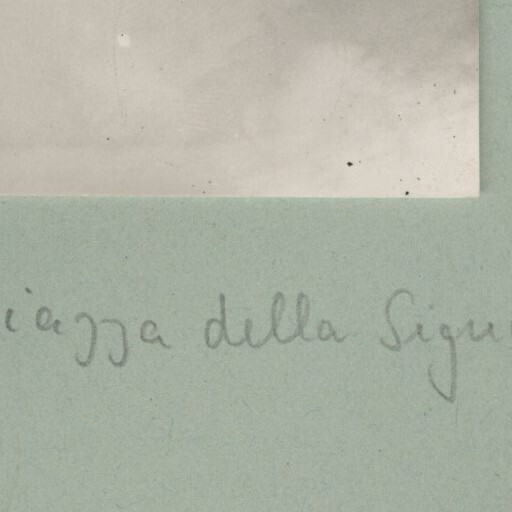 iazza della Sign